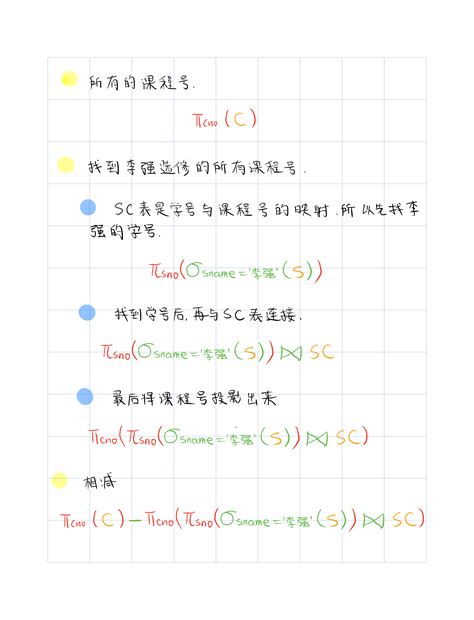 所有的课程号.
πcno(C)
找到李强选修的所有课程号.
SC表是学号与课程号的映射.所以先找李
强的学号.
πsno(σsname='李强'(S))
找到学号后,再与SC表连接.
πsno(σsname='李强'(S))⋈SC
最后将课程号投影出来
πcno(πsno(σsname='李强'(S))⋈SC)
相减
πcno(C)-πcno(πsno(σsname='李强'(S))⋈SC)